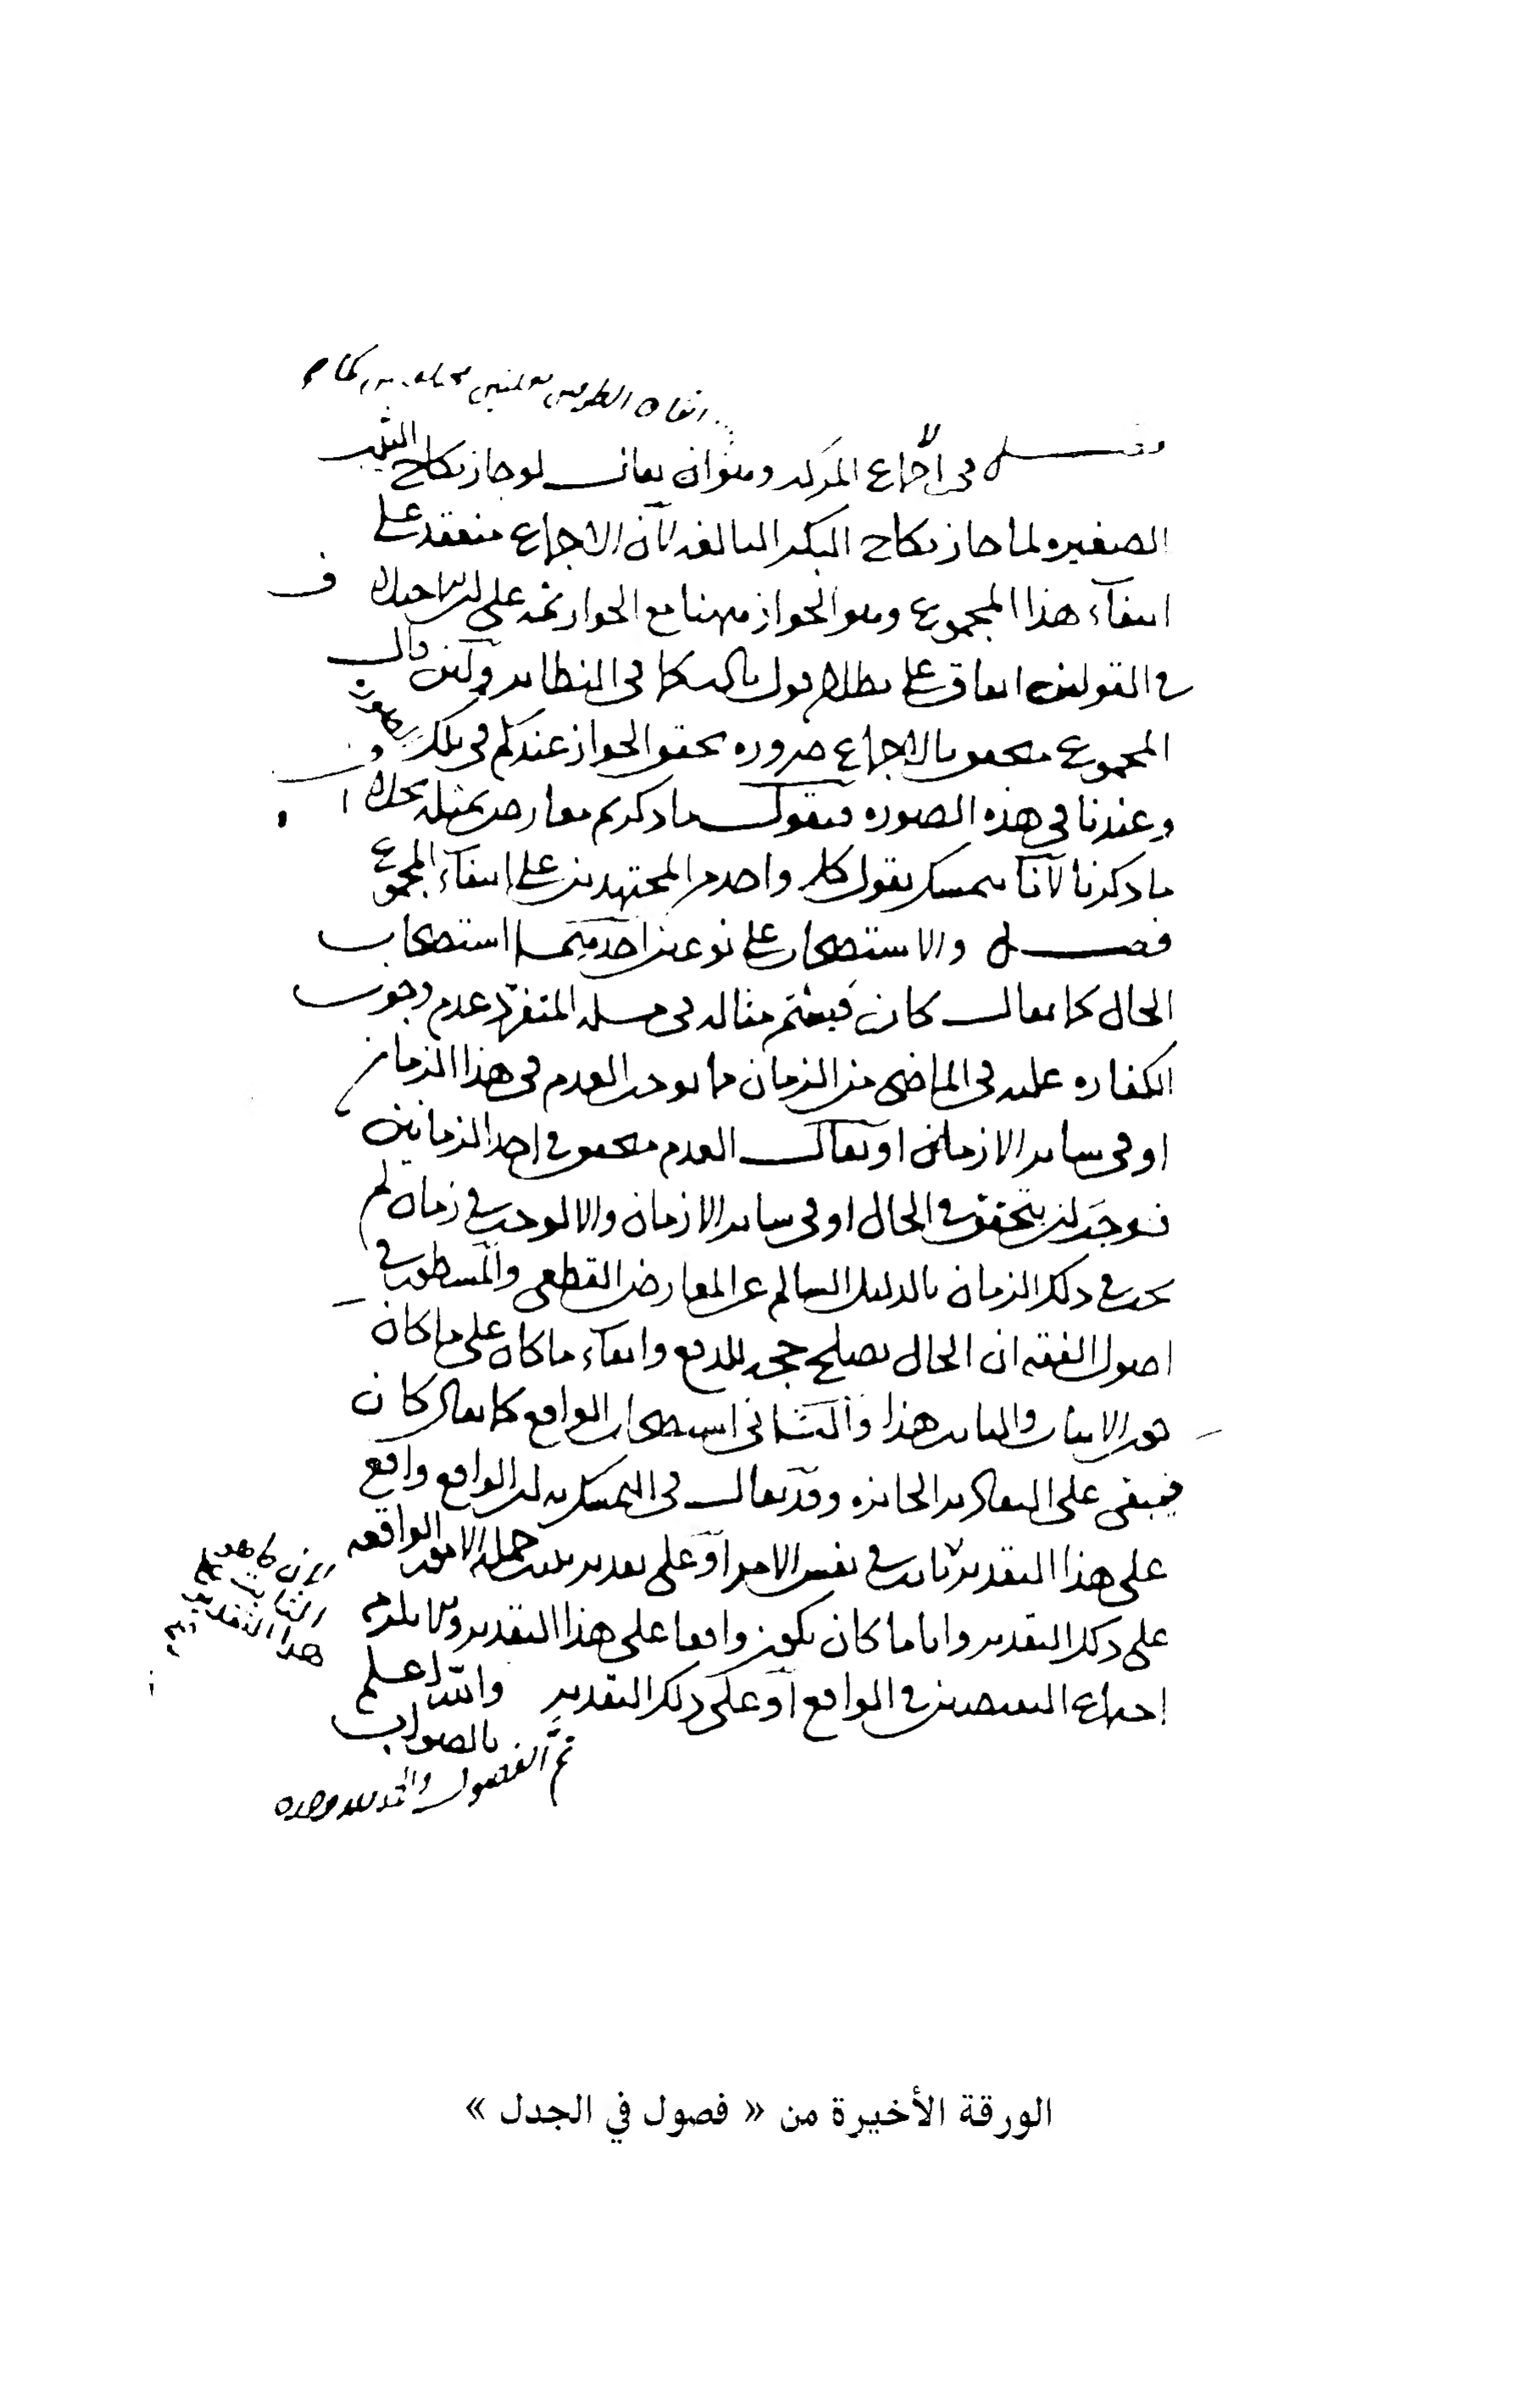 فصل في الاجماع المركب وهو ان يقال لو جاز نكاح الثيب
الصغيره لما جاز نكاح البكر البالغه لان الاجماع منعقد على
انتفاء هذا المجموع وهو الجواز ههنا مع الجواز ثمه على
في القولين اتفاق على بطلان قول ثالث كما في النظاير ولئن قال
المجموع متحقق بالاجماع ضروره تحقق الجواز عندكم في تلك الصوره
وعندنا في هذه الصوره فنقول ما ذكرتم معارض بمثله بخلاف
ما ذكرنا لانا نتمسك بقول كل واحد من المجتهدين على انتفاء المجموع
فصل والاستصحاب على نوعين احدهما استصحاب
الحال كما يقال كان فيبقى ثم مثاله في مسله المتفرد عدم وجوب
الكفاره عليه في الماضي من الزمان مما يوجب العدم في هذا الزمان
او في ساير الازمان او يقال العدم متحقق في احد الزمانين
فوجب ان يتحقق في الحال او في ساير الازمان والا لوجب في زمان لم
يجب في ذلك الزمان بالدليل السالم عن المعارض القطعي والمسطور في
اصول الفقه ان الحال يصلح حجه للدفع وابقاء ما كان على ما كان
هذا والثاني استصحاب الواقع كما يقال كان
فيبقى على التقادير الجايزه وقد يقال في التمسك به ان الواقع واقع
على هذا التقدير ثابت في نفس الامر او على تقدير من جمله الامور الواقعه
على ذلك التقدير واياما كان يكون واقعا على هذا التقدير ولا يلزم
اجتماع النقيضين في الواقع او على ذلك التقدير والله اعلم
بالصواب
تم الفصول والحمد لله وحده
الثابت على
هذا التقدير
الورقة الأخيرة من « فصول في الجدل »